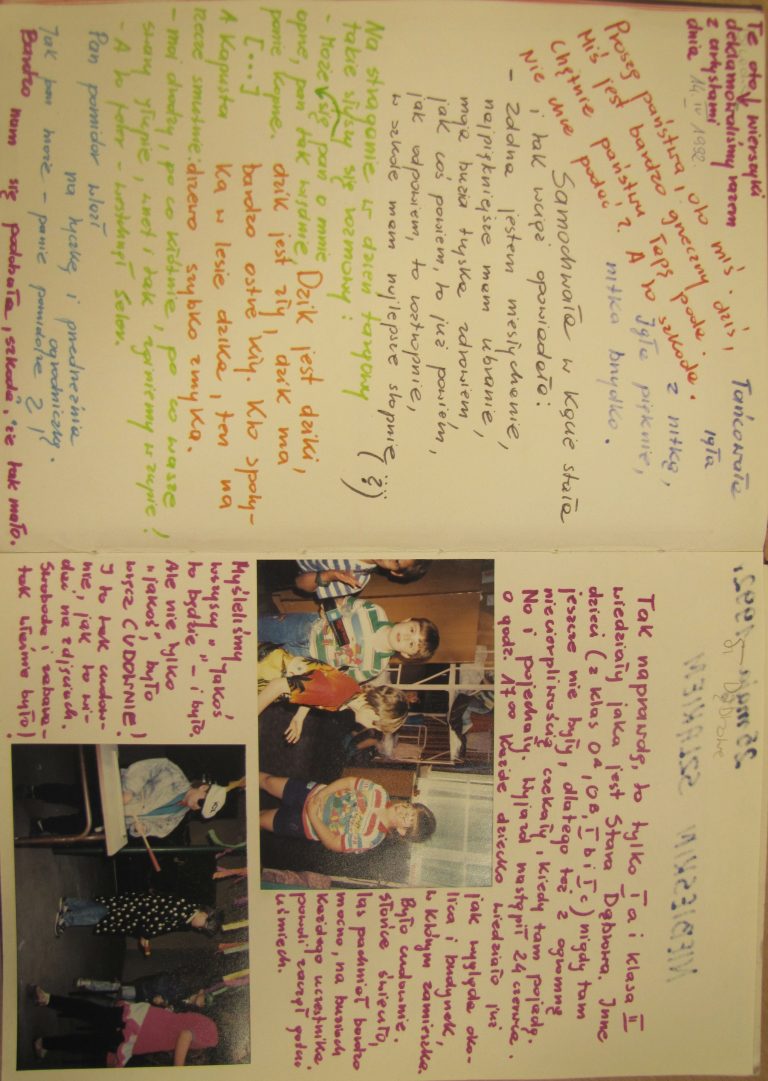 Te oto wierszyki
deklamowaliśmy razem
z artystami
dnia 14 IV 1992.
Proszę państwa, oto miś.
Miś jest bardzo grzeczny dziś,
Chętnie państwu łapę poda.
Nie chce podać? A to szkoda.
Tańcowała
igła
z nitką,
igła pięknie,
nitka brzydko.
Samochwała w kącie stała
i tak wciąż opowiadała:
- Zdolna jestem niesłychanie,
najpiękniejsze mam ubranie,
moja buzia tryska zdrowiem,
jak coś powiem, to już powiem,
jak odpowiem, to roztropnie,
w szkole mam najlepsze stopnie (?)
Na straganie w dzień targowy
takie słyszy się rozmowy:
- Może się pan o mnie
oprze, pan tak więdnie,
panie koprze.
[...]
A Kapusta
rzecze smutnie:
- moi drodzy, po co kłótnie, po co wasze
swary głupie, wnet i tak zginiemy w zupie!
- A to feler - westchnął seler.
Dzik jest dziki,
dzik jest zły, dzik ma
bardzo ostre kły. Kto spoty-
ka w lesie dzika, ten na
drzewo szybko zmyka.
Pan pomidor wlazł
na tyczkę i przedrzeźnia
ogrodniczkę.
Jak pan może - panie pomidorze ?!
Bardzo nam się podobała, szkoda, że tak mało.
Tak naprawdę, to tylko I a i klasa II
wiedziały jaka jest Stara Dąbrowa. Inne
dzieci (z klas 0A, 0B, I b i I c) nigdy tam
jeszcze nie były, dlatego też z ogromną
niecierpliwością czekały, kiedy tam pojadą.
No i pojechały. Wyjazd nastąpił 24 czerwca.
o godz. 17 00 Każde dziecko wiedziało już
jak wygląda oko-
lica i budynek,
w którym zamieszka.
Było cudownie.
Słońce świeciło,
las pachniał bardzo
mocno, na buziach
każdego uczestnika
powoli zaczął gościć
uśmiech.
Myśleliśmy
wszyscy, "jakoś
to będzie" - i było.
Ale nie tylko
"jakoś", było
wręcz CUDOWNIE!
I to tak cudow-
nie, jak to wi-
dać na zdjęciach.
Swoboda i zabawa -
tak właśnie było!